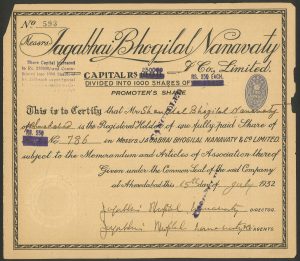 No 593
Messrs
Jagabhai Bhogilal Nanavaty
& Co. Limited.
Share Capital Increased
CAPITAL RS.
RS. 250 EACH.
DIVIDED INTO 1000 SHARES OF
PROMOTER'S SHARE
This is to Certify that Mr Bhogilal Nanavaty
of is the Registered Holder of one fully paid Share of
RS. 250
No 786 in MESSRS JAGABHAI BHOGILAL NANAVATY & CO. LIMITED.
subject to the Memorandum and Articles of Association thereof
Given under the Common Seal of the said Company
at Ahmedabad this 15th day of July 1932
DIRECTOR.
AGENTS.
CANCELLED